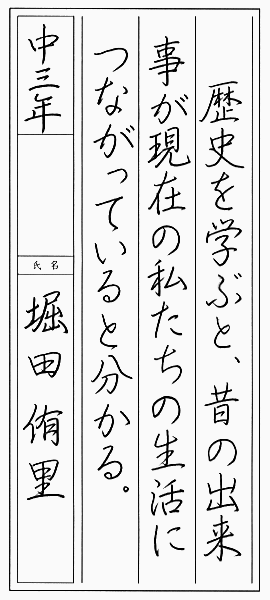 歴史を学ぶと、昔の出来
事が現在の私たちの生活に
つながっていると分かる。
中三年
氏名
堀田侑里